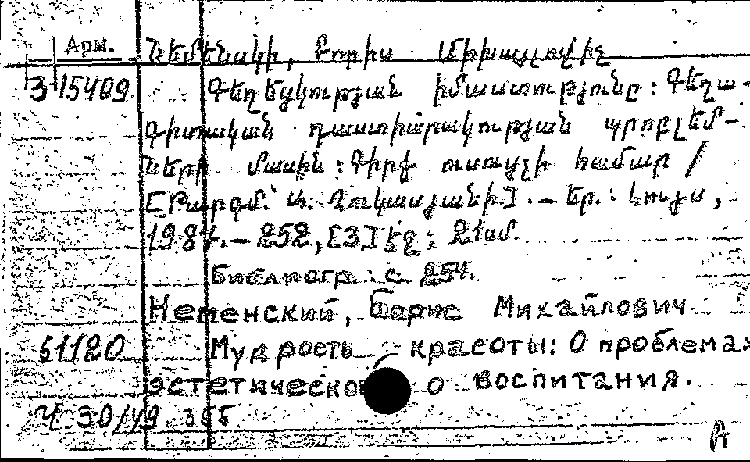 Арм.
Նեմենսկի, Բորիս Միխայլովիչ
3-15409 Գեղեցկության իմաստությունը: Գեղա-
գիտական դաստիարակության պրոբլեմ-
ների մասին: Գիրք ուսուցչի համար /
[Թարգմ՝ Ղուկասյանի]. - Եր.: Լույս,
1984. - 252, [3] էջ; 21սմ.
Библиогр.: с. 254.
Неменский, Борис Михайлович
51120 Мудрость красоты: О проблемах
эстетическо о воспитания.
Ч 30/49